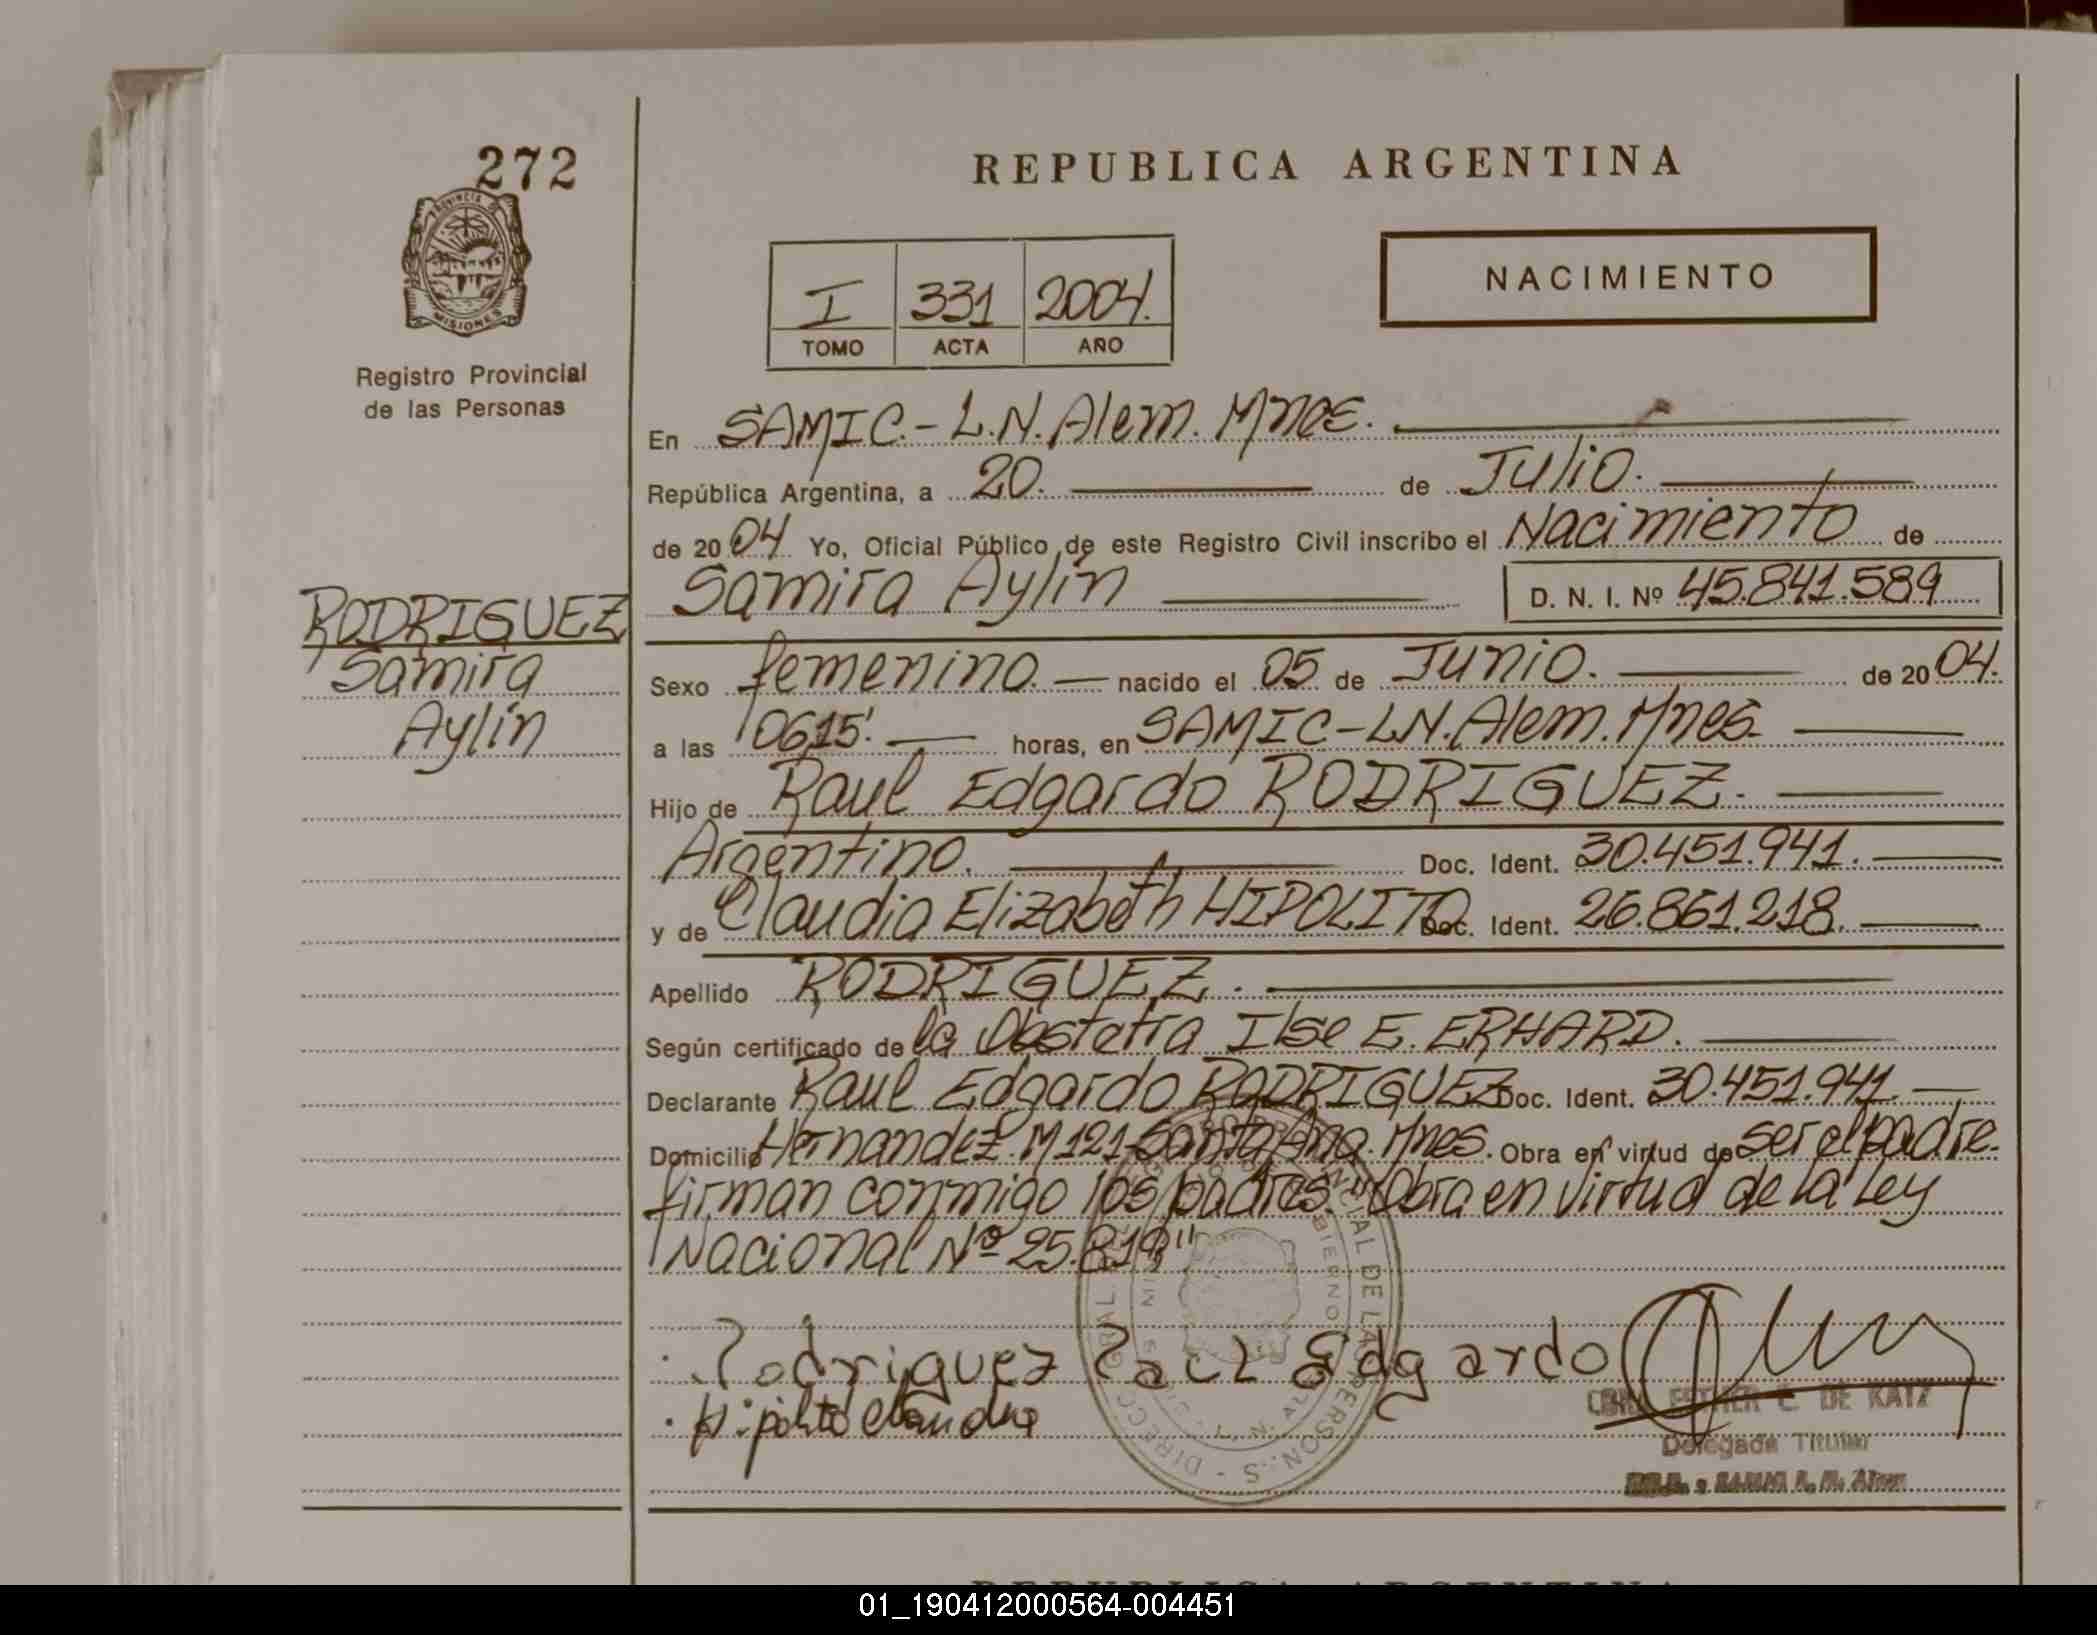 272
PROVINCIA DE
MISIONES
Registro Provincial
de las Personas
RODRIGUEZ
Samira
Aylín
REPUBLICA ARGENTINA
I 331 2004.
TOMO ACTA AÑO
NACIMIENTO
En SAMIC.-L.N.Alem. Mnes.
República Argentina, a 20. de Julio.
de 2004 Yo, Oficial Público de este Registro Civil inscribo el Nacimiento de
Samira Aylín D. N. I. Nº 45.841.589
Sexo femenino. nacido el 05 de Junio. de 2004.
a las 0615' horas, en SAMIC-LN.Alem.Mnes.
Hijo de Raul Edgardo RODRIGUEZ.
Argentino. Doc. Ident. 30.451.941.
y de Claudia Elizabeth HIPOLITO Doc. Ident. 26.861.218.
Apellido RODRIGUEZ.
Según certificado de la Obstetra Ilse E. ERHARD.
Declarante Raul Edgardo RODRIGUEZ Doc. Ident. 30.451.941.
Domicilio Hernandez. M121 Santa Ana. Mnes. Obra en virtud de ser el padre.
firman conmigo los padres. "Obra en virtud de la Ley
Nacional Nº 25.819"
Rodriguez Raul Edgardo
Hipolito Claudia
ESTHER C. DE KATZ
Delegada Titular
L. N. Alem
01_190412000564-004451